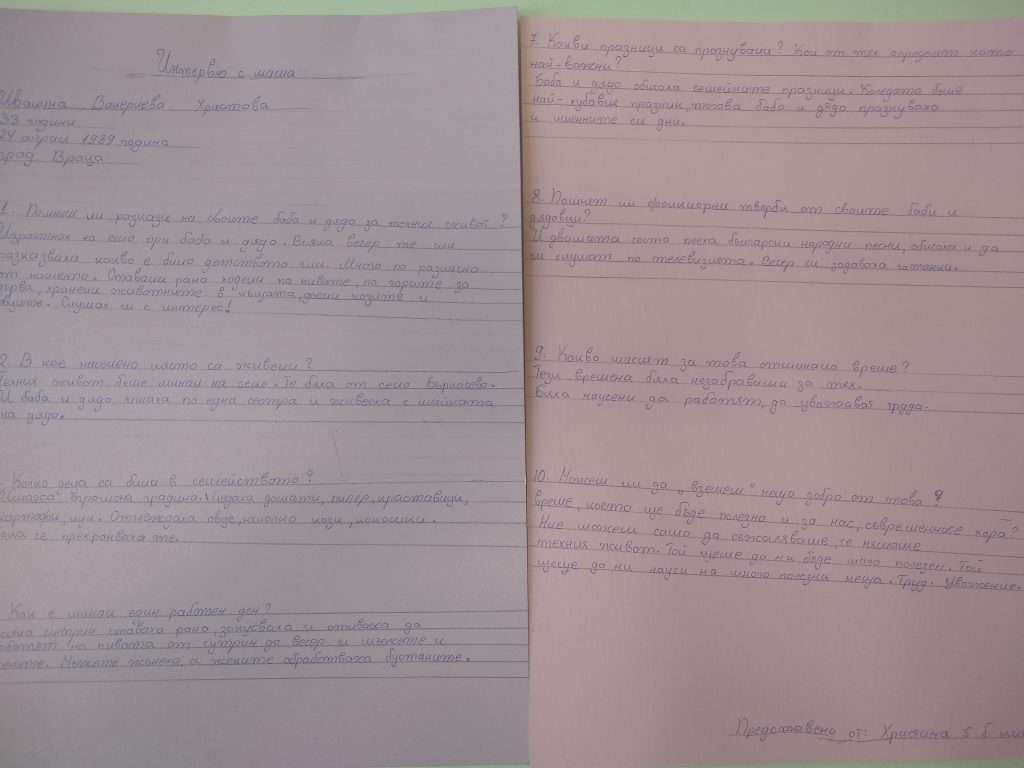 Интервю с мама
Ивалина Валериева Христова
33 години
24 април 1989 година
град Враца.
1. Помниш ли разкази на своите баба и дядо за техния живот?
Израстнах на село при баба и дядо. Всяка вечер те ми
разказваха какво е било детството им. Много по различно
от нашето. Ставаш рано ходеш по нивите, по горите за
дърва, храниш животните в къщата, доеш козите и
овците. Слушах ги с интерес!
2. В кое населено място са живели?
Техния живот беше минал на село. Те бяха от село
И баба и дядо имаха по една сестра и живееха с майката
на дядо.
Колко деца са били в семейството?
Имаха огромена градина. Гледаха домати, пипер, краставици,
картофи, лук. Отглеждаха овце, няколко кози, кокошки.
се прехранваха те.
Как е минал един работен ден?
сутрин ставаха рано, закусваха и отиваха да
работят на нивата от сутрин до вечер и мъжете и
жените. Мъжете жънеха, а жените обработваха бустаните.
7. Какви празници са празнували? Кои от тях определят като
най-важни?
Баба и дядо обичаха семейните празници. Коледата беше
най-хубавия празник, тогава баба и дядо празнуваха
и именните си дни.
8. Помнят ли фолклорни творби от своите баби и
дядовци?
И двамата често пееха български народни песни, обичаха и да
ги слушат по телевизията. Вечер си задаваха гатанки.
9. Какво мислят за това отминало време?
Тези времена бяха незабравими за тях.
Бяха научени да работят, да уважават труда.
10. Можеш ли да „вземеш" нещо добро от това
време, което ще бъде полезно и за нас, съвременните хора?
Ние можем само да съжаляваме, че нямаме
техния живот. Той щеше да ни бъде много полезен. Той
щеше да ни научи на много полезни неща. Труд. Уважение.
Представено от: Христина 5 б